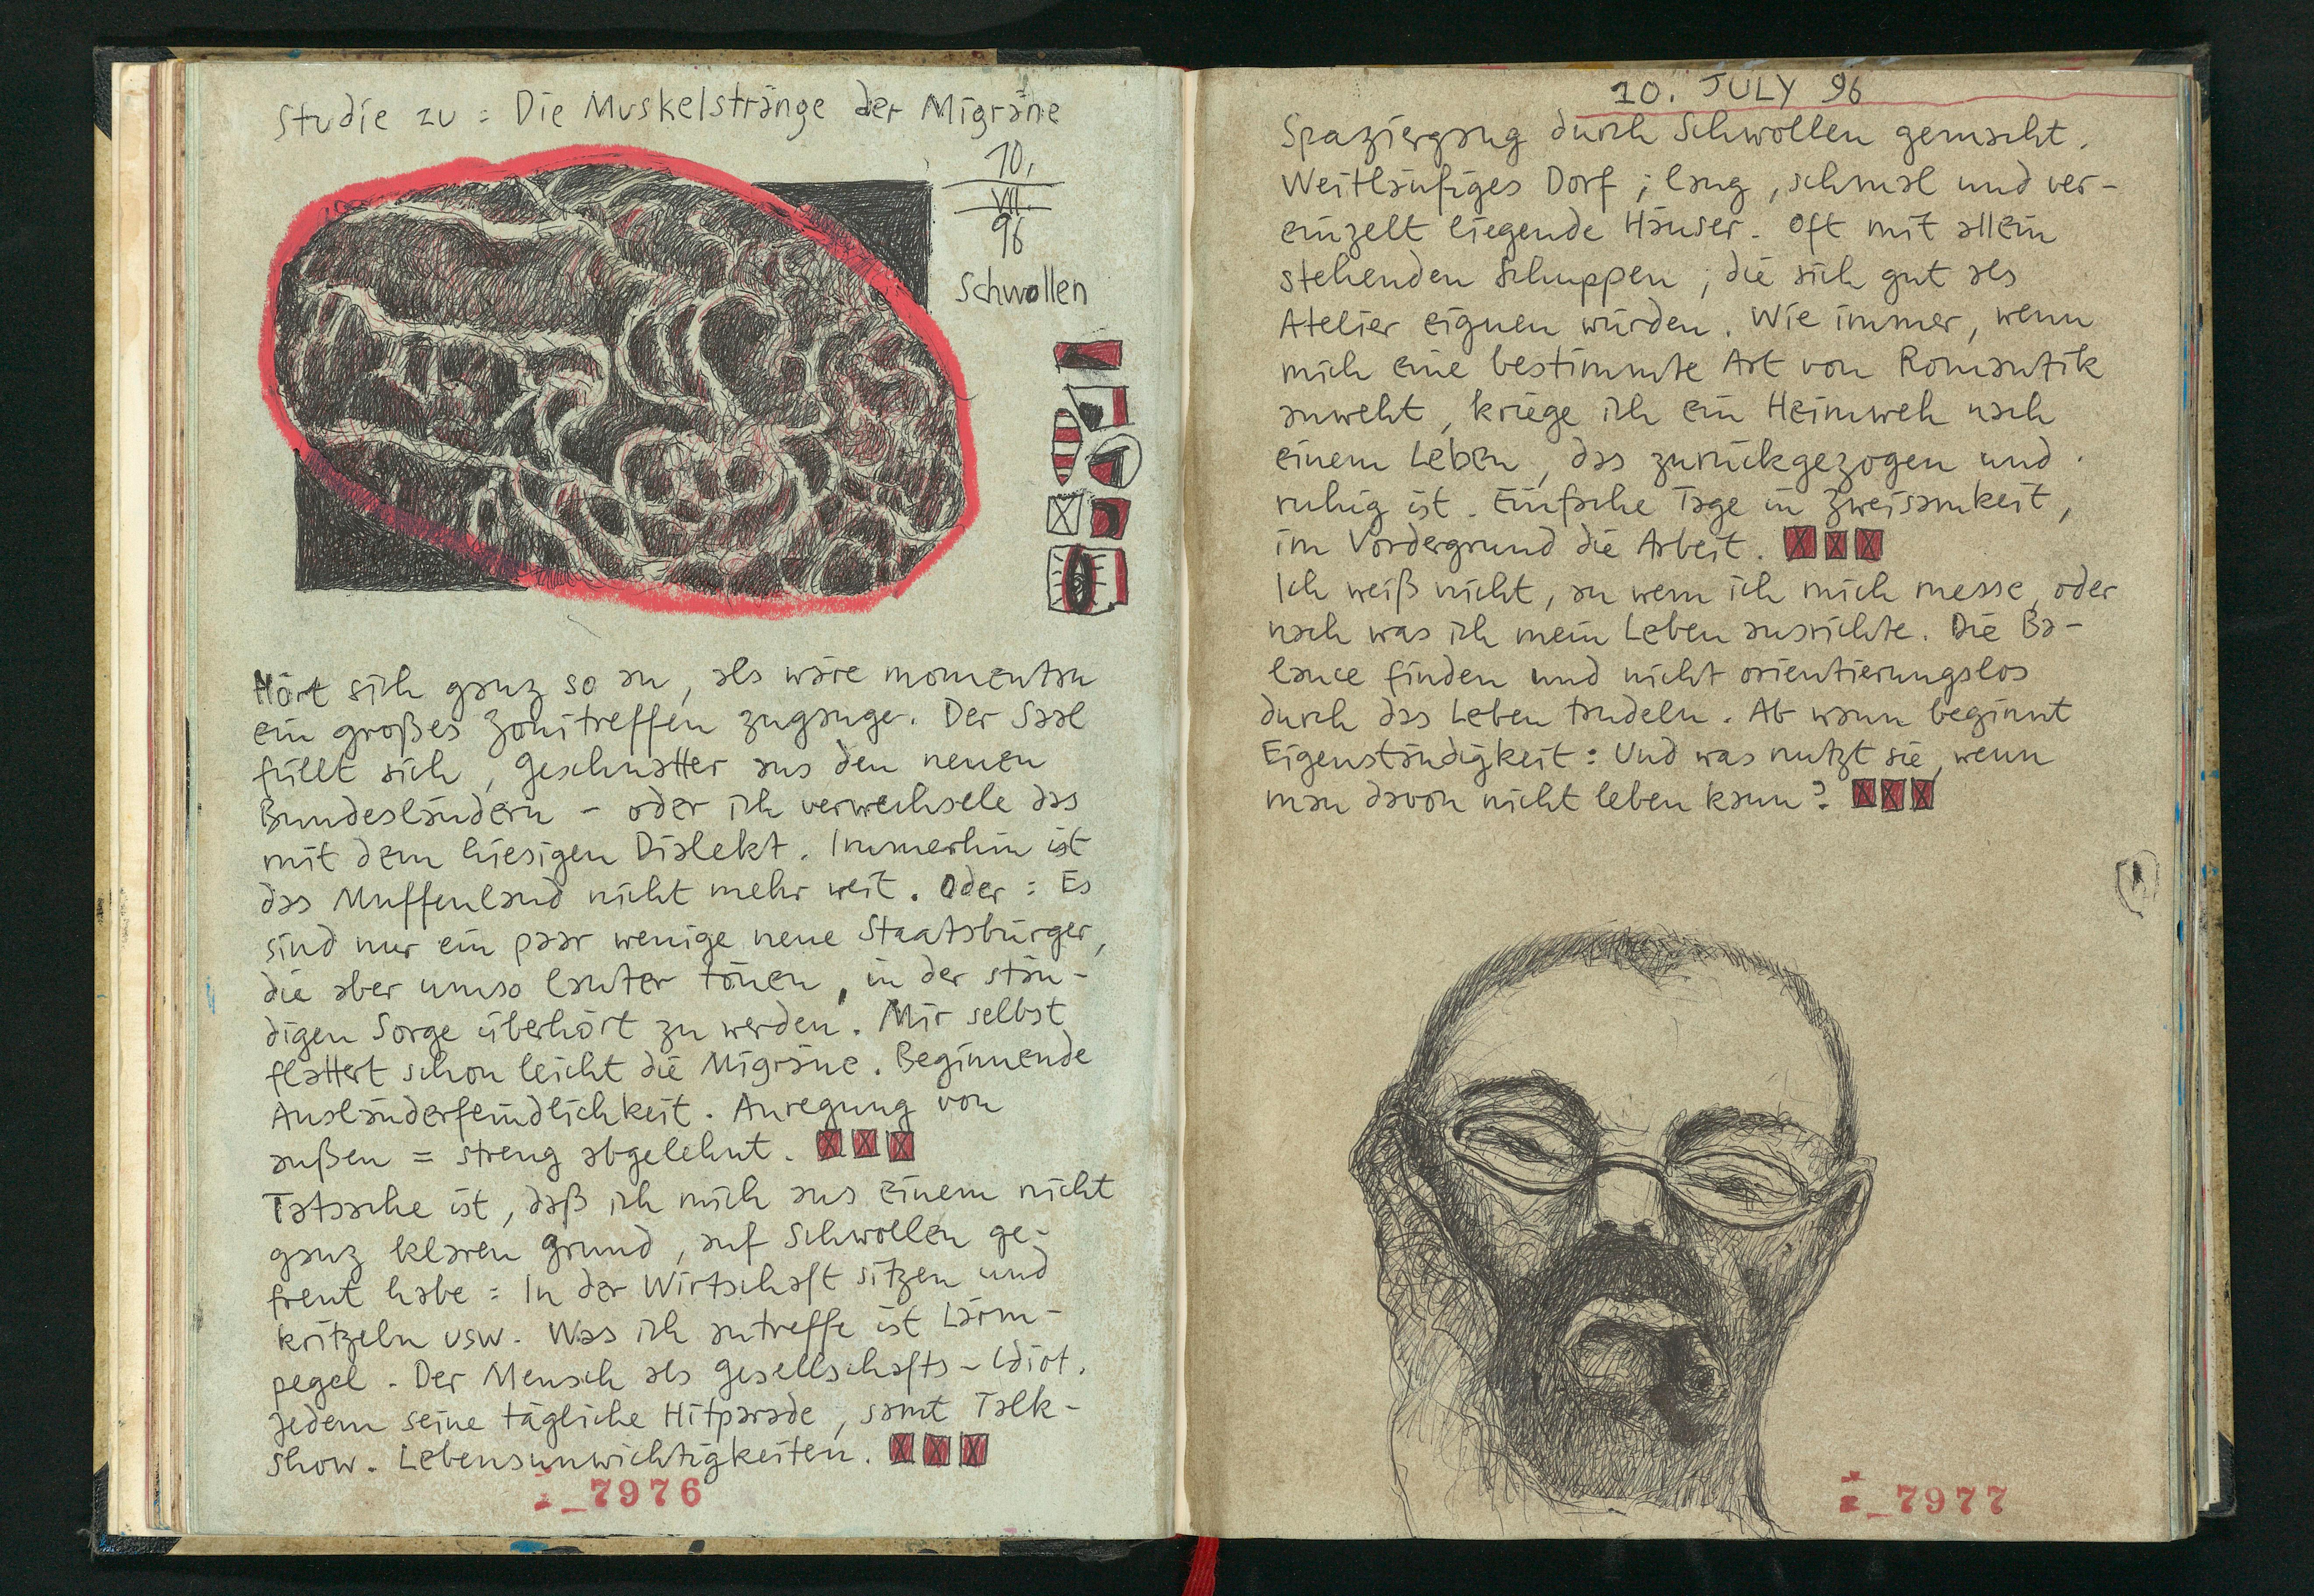 Studie zu : Die Muskelstränge der Migräne
10.
VII.
96
Schwollen
Hört sich ganz so an, als wäre momentan
ein großes Zonitreffen zugange. Der Saal
füllt sich, Geschnatter aus den neuen
Bundesländern – oder ich verwechsele das
mit dem hiesigen Dialekt. Immerhin ist
das Muffenland nicht mehr weit. Oder : Es
sind nur ein paar wenige neue Staatsbürger,
die aber umso lauter tönen, in der stän-
digen Sorge überhört zu werden. Mir selbst
flattert schon leicht die Migräne. Beginnende
Ausländerfeindlichkeit. Anregung von
außen = streng abgelehnt.
Tatsache ist, daß ich mich aus einem nicht
ganz klaren Grund, auf Schwollen ge-
freut habe : In der Wirtschaft sitzen und
kritzeln usw. Was ich antreffe ist Lärm-
pegel. Der Mensch als Gesellschafts-Idiot.
Jedem seine tägliche Hitparade, samt Talk-
show. Lebensunwichtigkeiten.
7976
10. JULY 96
Spaziergang durch Schwollen gemacht.
Weitläufiges Dorf ; lang, schmal und ver-
einzelt liegende Häuser. Oft mit allein
stehenden Schuppen ; die sich gut als
Atelier eignen würden. Wie immer, wenn
mich eine bestimmte Art von Romantik
anweht, kriege ich ein Heimweh nach
einem Leben, das zurückgezogen und
ruhig ist. Einfache Tage in Zweisamkeit,
im Vordergrund die Arbeit.
Ich weiß nicht, an wem ich mich messe, oder
nach was ich mein Leben ausrichte. Die Ba-
lance finden und nicht orientierungslos
durch das Leben trudeln. Ab wann beginnt
Eigenständigkeit : Und was nutzt sie, wenn
man davon nicht leben kann?
7977